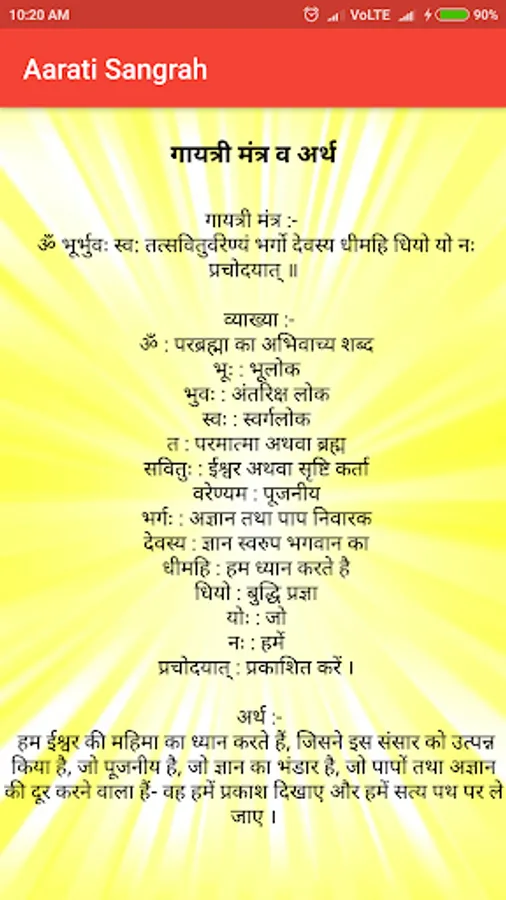 10:20 AM VoLTE 90%
Aarati Sangrah
गायत्री मंत्र व अर्थ
गायत्री मंत्र :-
ॐ भूर्भुवः स्व: तत्सवितुर्वरेण्यं भर्गो देवस्य धीमहि धियो यो नः
प्रचोदयात् ॥
व्याख्या :-
ॐ : परब्रह्मा का अभिवाच्य शब्द
भूः : भूलोक
भुवः : अंतरिक्ष लोक
स्वः : स्वर्गलोक
त : परमात्मा अथवा ब्रह्म
सवितुः : ईश्वर अथवा सृष्टि कर्ता
वरेण्यम : पूजनीय
भर्गः : अज्ञान तथा पाप निवारक
देवस्य : ज्ञान स्वरुप भगवान का
धीमहि : हम ध्यान करते है
धियो : बुद्धि प्रज्ञा
योः : जो
नः : हमें
प्रचोदयात् : प्रकाशित करें ।
अर्थ :-
हम ईश्वर की महिमा का ध्यान करते हैं, जिसने इस संसार को उत्पन्न
किया है, जो पूजनीय है, जो ज्ञान का भंडार है, जो पापों तथा अज्ञान
की दूर करने वाला हैं- वह हमें प्रकाश दिखाए और हमें सत्य पथ पर ले
जाए ।